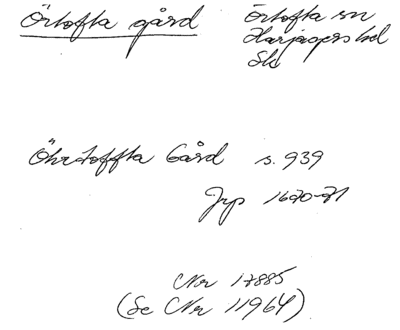 Örtofta gård
Örtofta sn
Harjagers hd
Sk
Öhrtoffta Gård s. 939
Jrp 1670-71
Nr 17885
(Se Nr 11964)